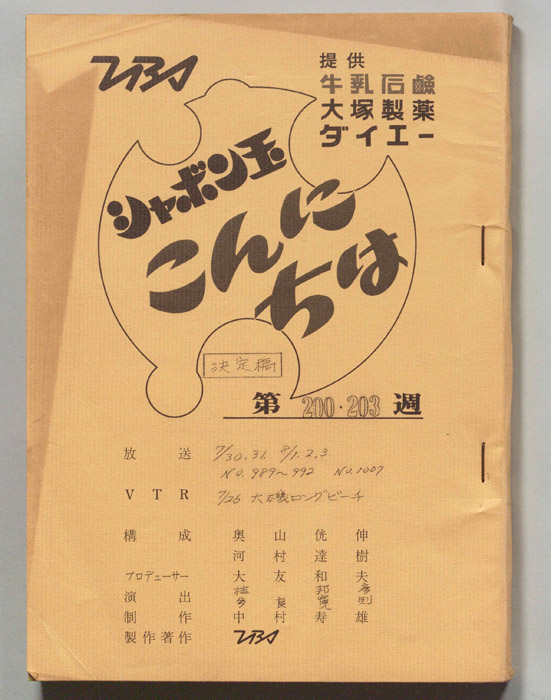 提供
牛乳石鹸
大塚製薬
ダイエー
シャボン玉
こんに
ちは
決定稿
第 200・203 週
放送 7/30.31. 8/1.2.3.
NO.989〜992 NO.1007
VTR 7/26 大磯ロングビーチ
構成 奥山侊伸
河村達樹
プロデューサー 大友和夫
演出
制作 中村寿雄
製作著作